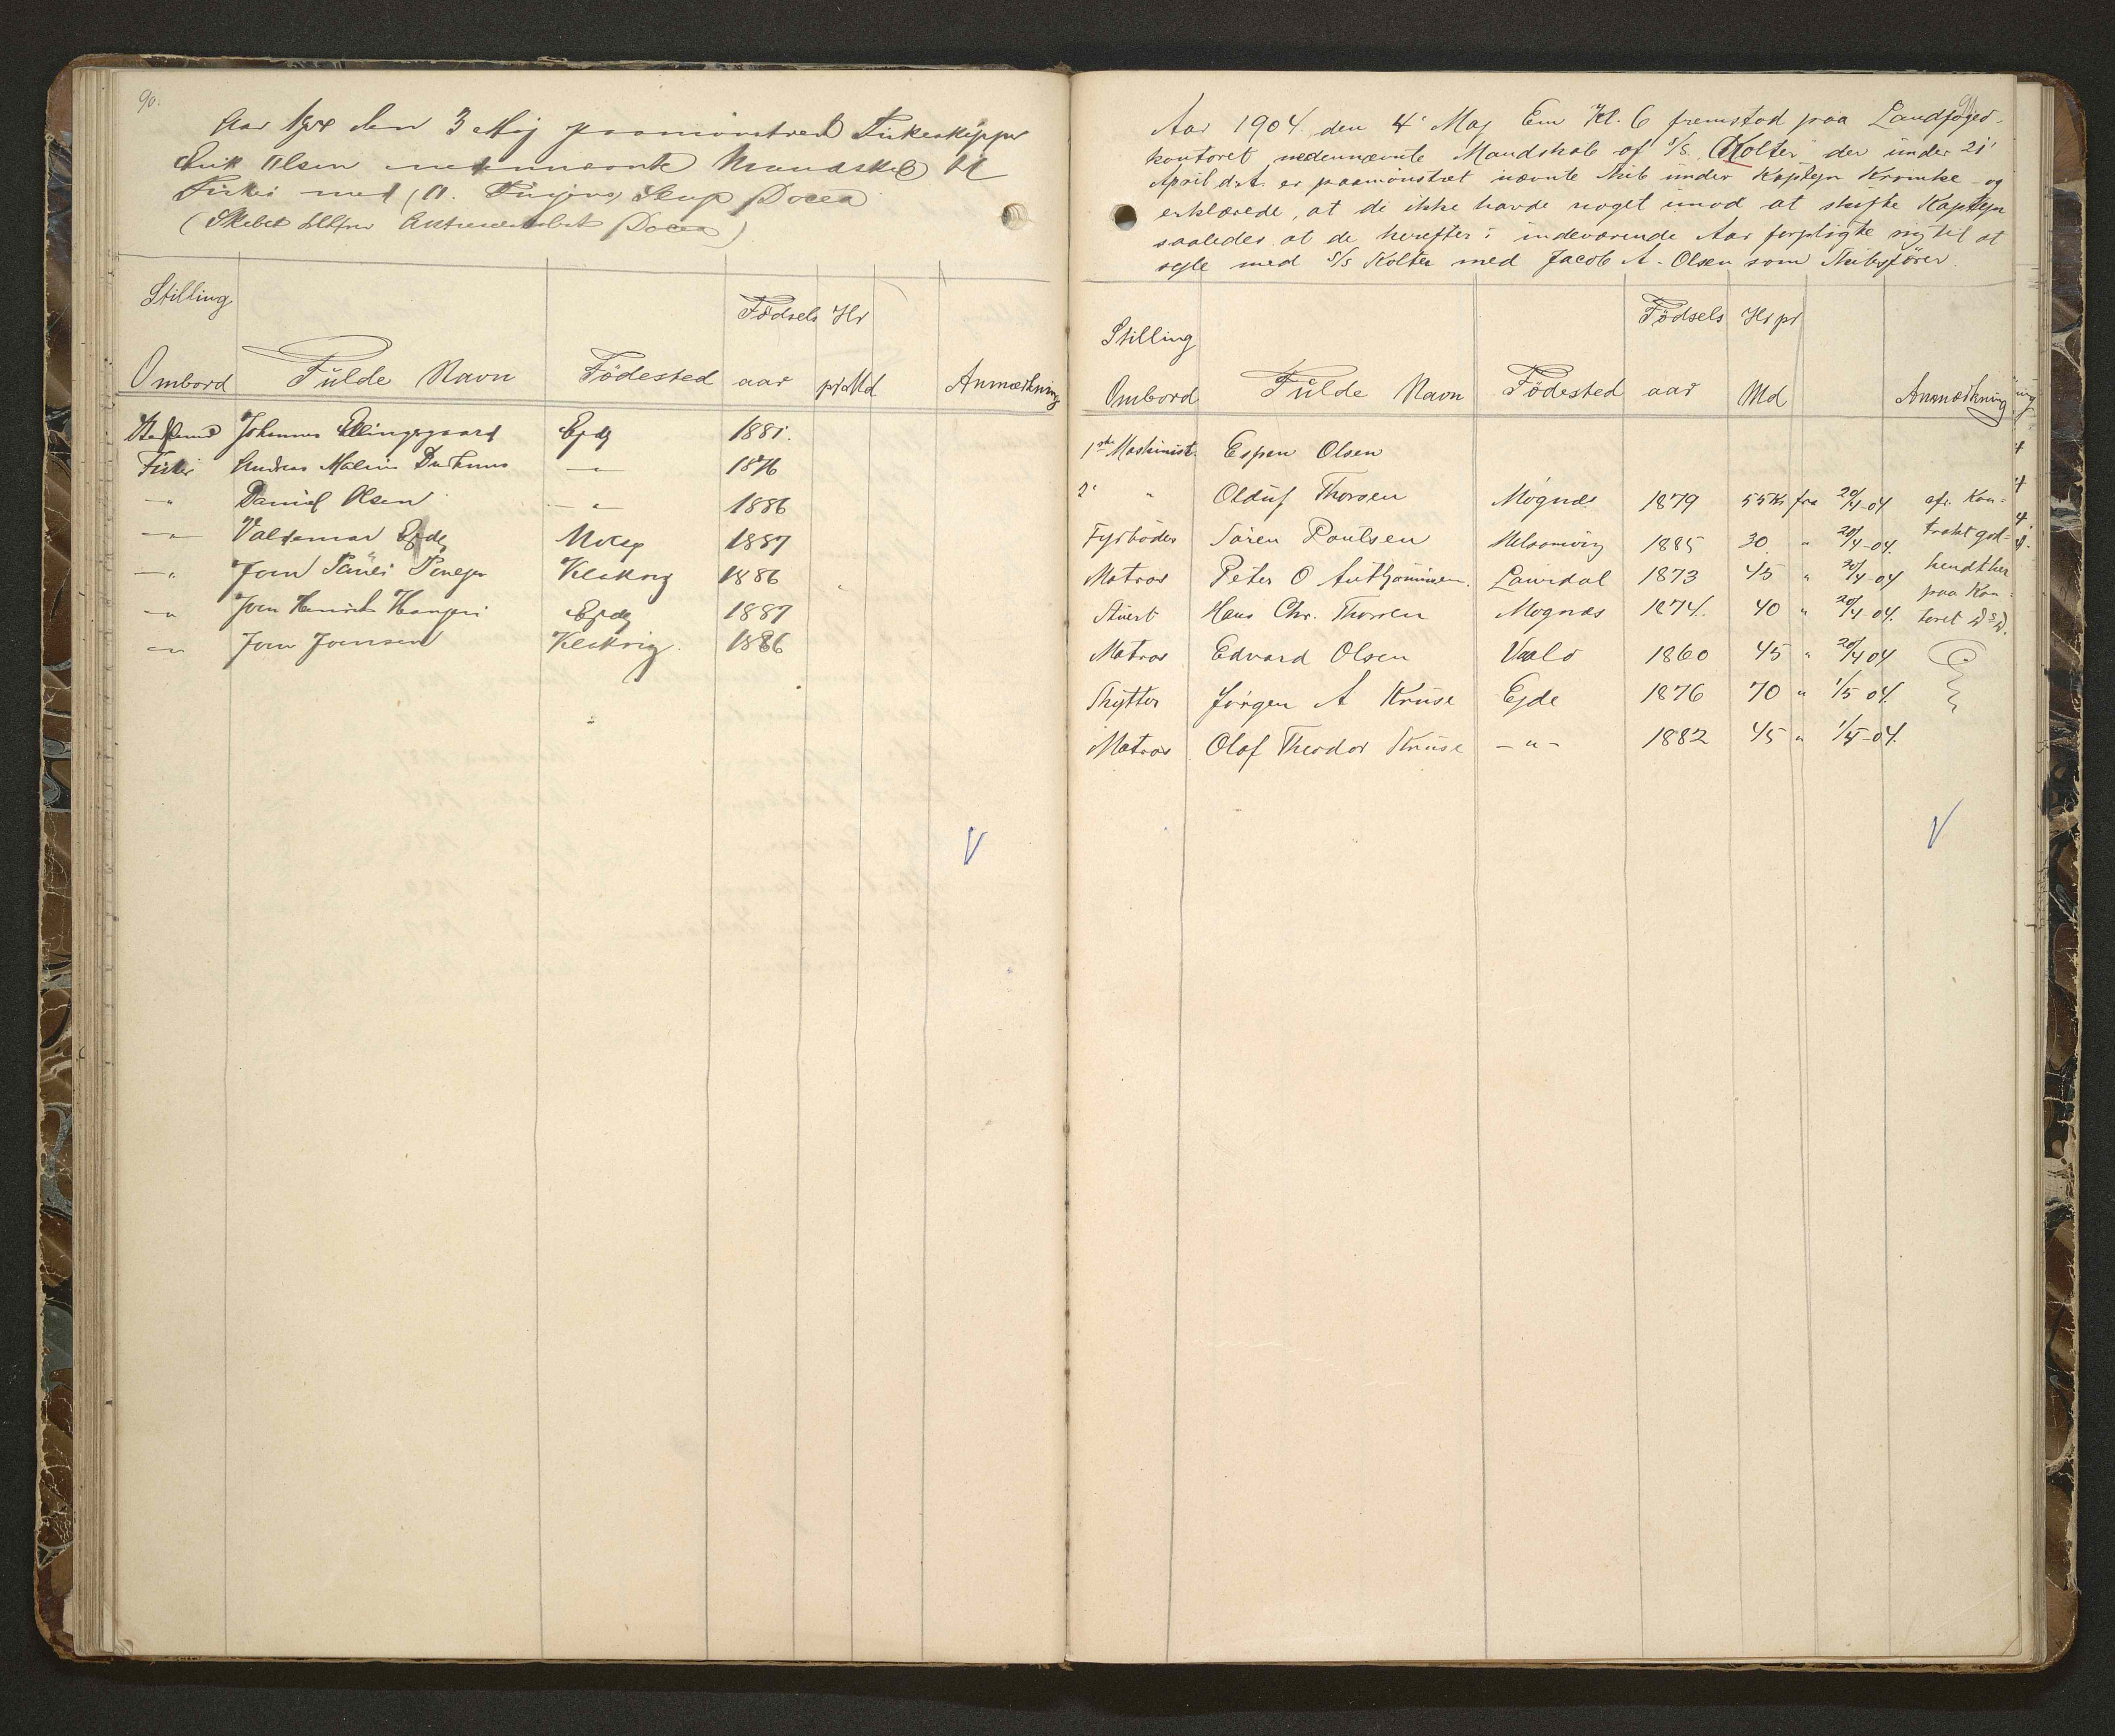 90.
Aar 1904 den 3 Maj paamönstred Fiskeskipper
Erik Olsen nedennævnte Mandskab til
Fiskeri med Slup Docea
(Skibet tilhører Aktieselskabet Docea)
Stilling Ombord Fülde Navn Födested Födsels aar Kr pr Md Anmærkning
Johannes Ellingsgaard Ejde 1881.
Fisker Andreas Malius 1876
-"- Daniel Olsen -"- 1886
-"- Valdemar Ejde 1887
-"- Joen Klaksvig 1886
-"- Joen Henrik Hansen Ejde 1887
-"- Joen Joensen Klaksvig. 1886
V
91
Aar 1904 den 4' Maj Em Kl. 6 fremstod paa Landfoged-
kontoret nedennævnte Mandskab af S/S. "Kolter" der ünder 21'
April d.A. er paamönstret nævnte Skib ünder Kaptejn Kromke og
erklærede, at de ikke havde noget imod at skifte Kaptejn
saaledes at de herefter i indeværende Aar forpligte sig til at
sejle med S/S Kolter med Jacob A. Olsen som Skibsförer.
Stilling Ombord Fülde Navn Födested Födsels aar Kr pr Md Anmærkning
1ste Maskinist. Espen Olsen
2' " Olüf Thorsen Mognæs 1879 55 Kr fra 20/4-04 efr. Kon-
Fyrböder Sören Poulsen 1885 30 " 20/4-04. trakt god-
Matros Peter O Laurdal 1873 45 " 20/4-04 kendt her
Stuert Hans Chr. Thorsen Mognæs 1874. 40 " 20/4-04. paa Kon-
toret D=D.
Matros Edvard Olsen Vaalo 1860 45 " 20/4 04
Skytter Jörgen A Krüse Ejde 1876 70 " 1/5 04.
Matros Olaf Theodor Krüse -"- 1882 45 " 1/5-04.
V